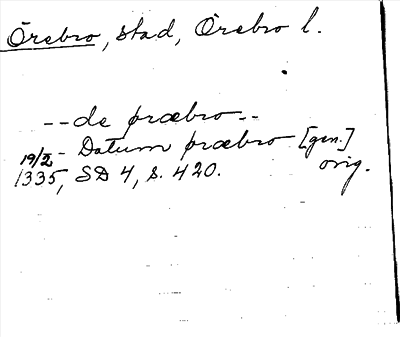 Örebro, stad, Örebro l.
-- de præbro --
- Datum præbro [gen.]
19/2 1335, SD 4, s. 420. orig.